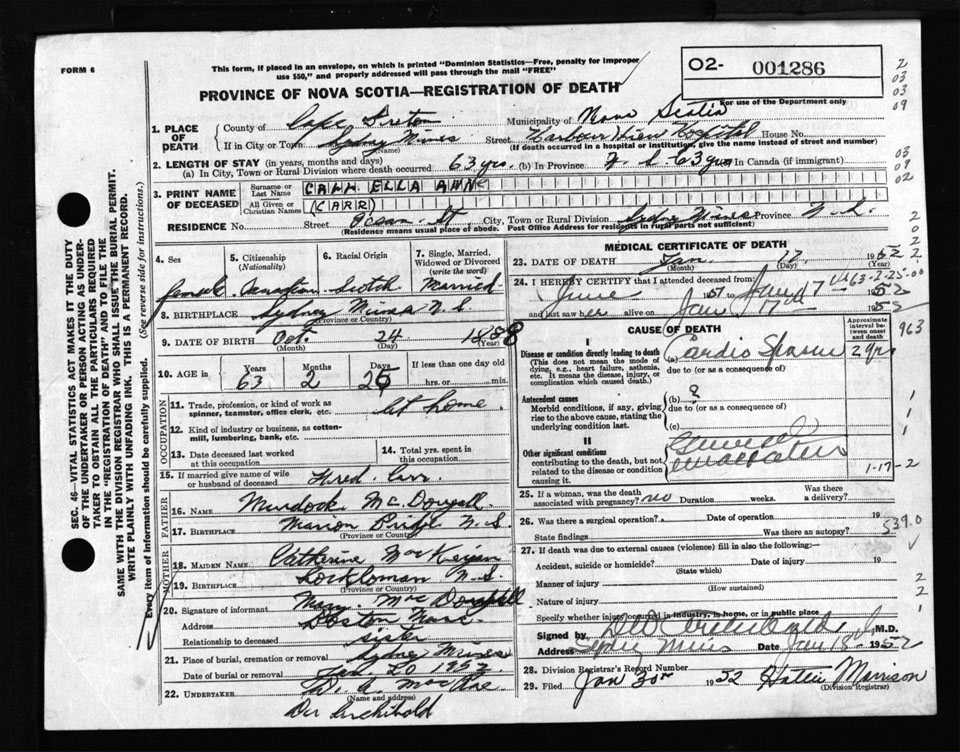 FORM 6
This form, if placed in an envelope, on which is printed "Dominion Statistics—Free, penalty for improper use $50," and properly addressed will pass through the mail "FREE"
O2- 001286
For use of the Department only
PROVINCE OF NOVA SCOTIA—REGISTRATION OF DEATH
1. PLACE OF DEATH
County of Cape Breton Municipality of Nova Scotia
If in City or Town Sydney Mines Street Harbour View Hospital House No.
(Name) (If death occurred in a hospital or institution, give the name instead of street and number)
2. LENGTH OF STAY (in years, months and days)
(a) In City, Town or Rural Division where death occurred 63 yrs. (b) In Province N.S. 63 yrs In Canada (if immigrant)
3. PRINT NAME OF DECEASED
Surname or Last Name CARR ELLA ANN
All Given or Christian Names (CARR)
RESIDENCE No. Street Ocean St City, Town or Rural Division Sydney Mines Province N.S.
(Residence means usual place of abode. Post Office Address for residents in rural parts not sufficient)
4. Sex
5. Citizenship (Nationality)
6. Racial Origin
7. Single, Married, Widowed or Divorced (write the word)
female Canadian Scotch Married
8. BIRTHPLACE Sydney Mines N.S.
(Province or Country)
9. DATE OF BIRTH Oct. 24 1888
(Month) (Day) (Year)
10. AGE in Years Months Days If less than one day
63 2 hrs. or min.
OCCUPATION
11. Trade, profession, or kind of work as spinner, teamster, office clerk, etc. at home.
12. Kind of industry or business, as cotton-mill, lumbering, bank, etc.
13. Date deceased last worked at this occupation
14. Total yrs. spent in this occupation
15. If married give name of wife or husband of deceased Fred. Carr
FATHER
16. NAME Murdock McDougall
17. BIRTHPLACE Marion Bridge N.S.
(Province or Country)
MOTHER
18. MAIDEN NAME Catherine MacKeigan
19. BIRTHPLACE Lochloman N.S.
(Province or Country)
20. Signature of informant Mary MacDougall
Address Boston Mass.
Relationship to deceased sister
21. Place of burial, cremation or removal Sydney Mines
Date of burial or removal Jan 20 1952
22. UNDERTAKER
(Name and address)
Dr Archibold
MEDICAL CERTIFICATE OF DEATH
23. DATE OF DEATH Jan. 17 1952
(Month) (Day) (Year)
24. I HEREBY CERTIFY that I attended deceased from:
June 1951 Jan 17 1952
and last saw her alive on Jan 17 1952
CAUSE OF DEATH
Approximate interval between onset and death
I
Disease or condition directly leading to death
(This does not mean the mode of dying, e.g., heart failure, asthenia, etc. It means the disease, injury, or complication which caused death.)
(a) Cardio Spasm 2 yrs
due to (or as a consequence of)
Antecedent causes
Morbid conditions, if any, giving rise to the above cause, stating the underlying condition last.
(b) ?
due to (or as a consequence of)
(c)
II
Other significant conditions
contributing to the death, but not related to the disease or condition causing it.
General emaciation
1-17-2
25. If a woman, was the death associated with pregnancy? no Duration weeks. Was there a delivery?
26. Was there a surgical operation? Date of operation 19
State findings Was there an autopsy?
27. If death was due to external causes (violence) fill in also the following:—
Accident, suicide or homicide? Date of injury 19
(State which)
Manner of injury
(How sustained)
Nature of injury
Specify whether injury occurred in industry, in home, or in public place
Signed by M.D.
Address Sydney Mines Date Jan 18 1952
28. Division Registrar's Record Number
29. Filed Jan 30 1952 Hattie Morrison
(Division Registrar)
963
539.0
SEC. 46—VITAL STATISTICS ACT MAKES IT THE DUTY OF THE UNDERTAKER OR PERSON ACTING AS UNDERTAKER TO OBTAIN ALL THE PARTICULARS REQUIRED IN THE "REGISTRATION OF DEATH" AND TO FILE THE SAME WITH THE DIVISION REGISTRAR WHO SHALL ISSUE THE BURIAL PERMIT.
WRITE PLAINLY WITH UNFADING INK. THIS IS A PERMANENT RECORD.
Every item of information should be carefully supplied. (See reverse side for instructions.)